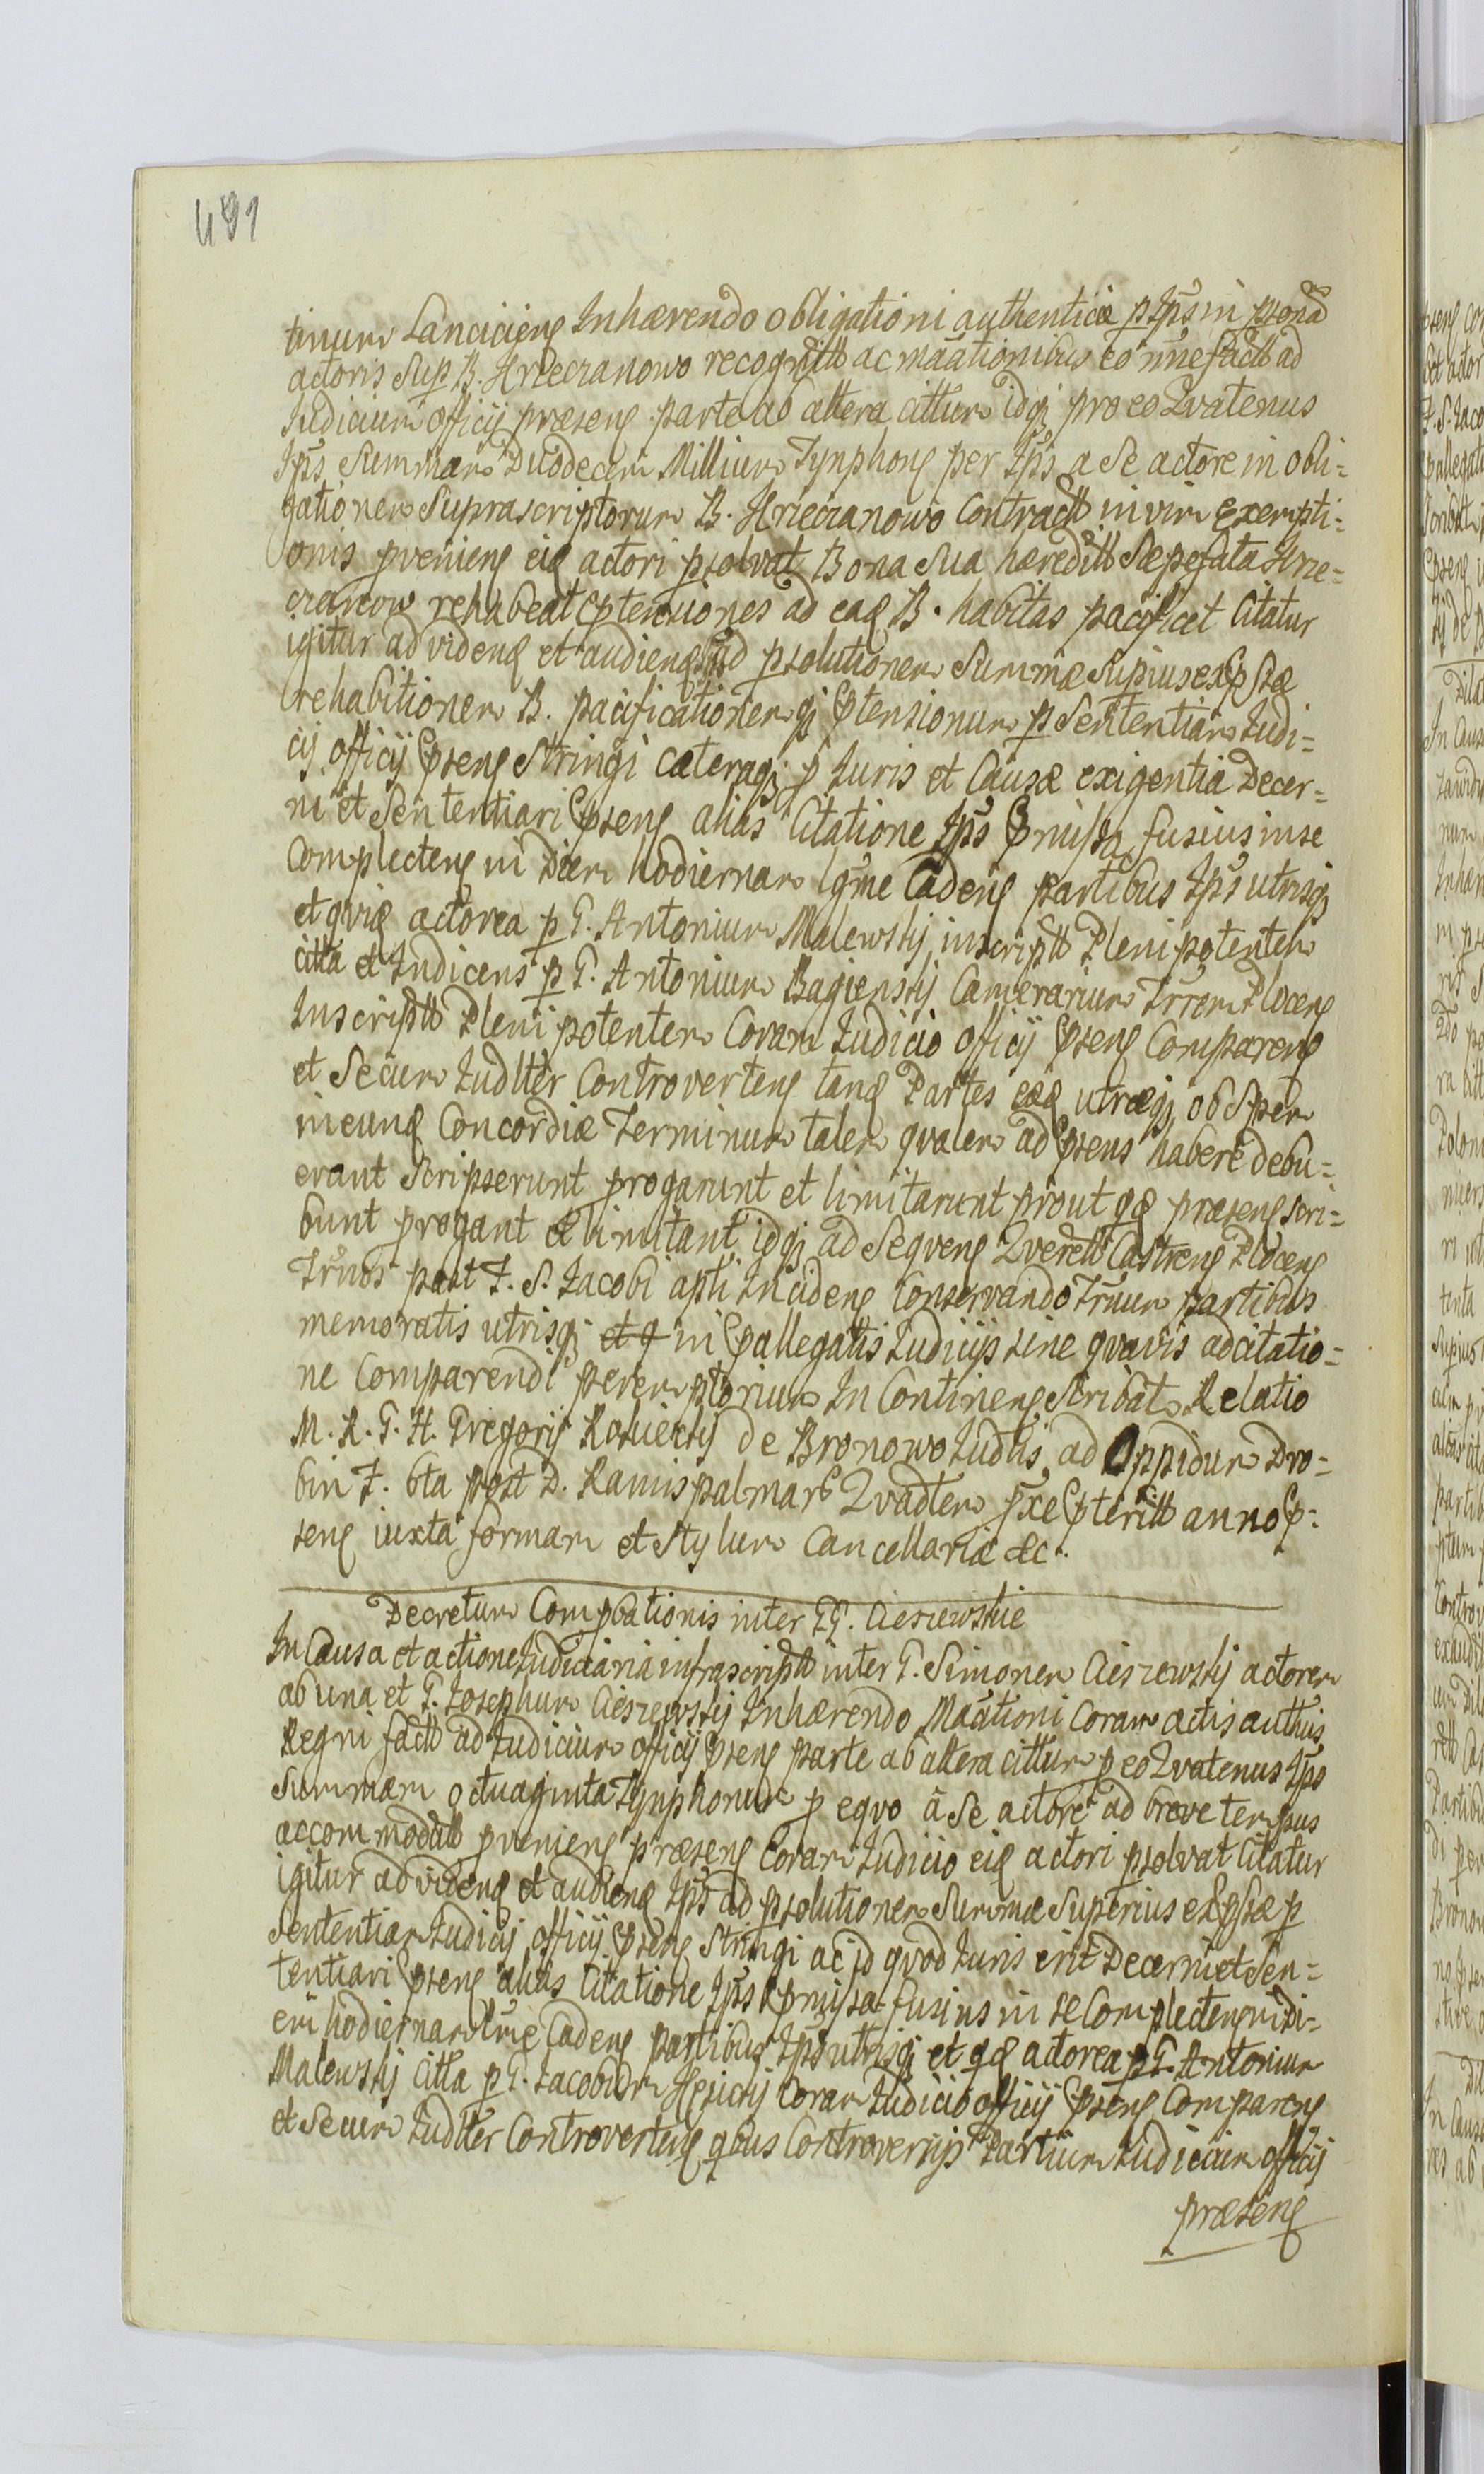 491
tinum Lancicieng Inhærendo obligationi authenticæ p Ips in psona
actoris sup B. Hrzecranowo recognitt ac mãationibus eo nñe factt ad
Iudicium officij præseng parte ab altera cittum idqȝ pro eo Qvatenus
Ips summam Duodecem Millium Tynphong per Ips a se actore in obli=
gationem suprascriptorum B. Hrzecranowo contractt in vim exempti=
onis pveniens eid actori psolvat Bona sua hæreditt sæpefata Hrze=
cranow rehabeat ptensiones ad ead B. habitas pacificet Citatur
igitur ad videnđ et audienđ ad psolutionem summæ supius exp̃ssæ
rehabitionem B. pacificationemqȝ ptensionum p sententiam Iudi=
cij officij pseng stringi cæteraqȝ p Iuris et Causæ exigentia Decer=
ni et sententiari pseng alias Citatione Ips pmissa fusius in se
complecteng in Diem hodiernam lgme Cadeng partibus Ips utrisqȝ
et qvid actorea p G. Antonium Malewskij inscriptt Plenipotentem
citta et Iudicens p G. Antonium Bagienskij Camerarium Trrem Ploceng
Inscriptt Plenipotentem Coram Iudicio officij pseng Compareng
et secum Iudlter Controverteng tand Partes eæd utræqȝ ob spem
ineund Concordiæ Terminum talem qvalem ad pseng habere debu=
erant scripserunt progarunt et limitarunt prout qđ præseng scri=
bunt progant et limitant idqȝ ad seqveng Qverett Castreng Ploceng
Trnos post F. S. Iacobi apti Incideng Conservando Trnum partibus
memoratis utrisqȝ et q in pallegattis Iudicijs sine qvavis adcitatio=
ne Comparendi peremptorium In Contineng stribat. Relatio
M. R. G. H. Gregorij Rosciexskij de Bronowo Iudlis ad Oppidum Dro=
bin F. 6ta post D. Ramispalmar Qvadtem pxe pteritt anno p:
seng iuxta formam et stylum Cancellariæ &c.
Decretum Compbationis inter GG. Cieszewskie
In Causa et actione Iudiciaria infrascriptt inter G. Simonem Cieszewskij actorem
ab una et G. Iosephum Cieszewskij Inhærendo Maãtioni Coram actis authis
Regni factt ad Iudicium officij pseng parte ab altera cittum p eo Qvatenus Ips
summam octuaginta Tynphonum p eqvo â se actore ad breve tempus
accommodatt pvenieng præseng Coram Iudicio eid actori psolvat Citatur
igitur ad videnđ et audienđ Ips ad psolutionem summæ superius exp̃ssæ p
sententiam Iudicij officij pseng stringi ac id qvod Iuris erit Decerni et sen=
tentiari pseng alias Citatione Ips pmissa fusius in se Complecteng in Di=
em hodiernam lrme Cadeng partibus Ips utrisqȝ et qđ actorea p G. Antonium
Malewskij Citta p G. Iacobum Coram Iudicio officij pseng Compareng
et secum Iudlter Controverteng qbus Controversijs Partium Iudicium officij
præseng